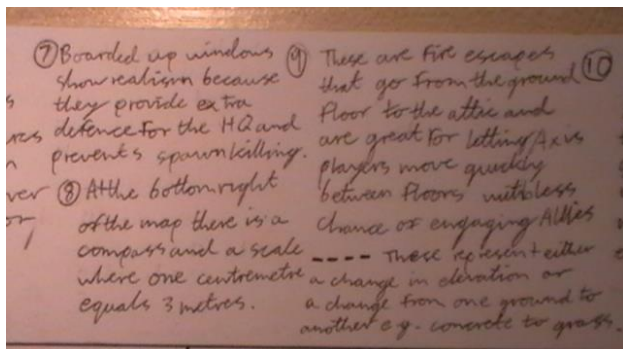 ⑦ Boarded up windows
show realism because
they provide extra
defence for the HQ and
prevents spawnkilling.
⑧ At the bottom right
of the map there is a
compass and a scale
where one centremetre
equals 3 metres.
⑨ These are Fire escapes
that go from the ground
floor to the attic and
are great for letting Axis
players move quickly
between floors with less
chance of engaging Allies
---- These represent either
a change in elevation or
a change from one ground to
another e.g. concrete to grass.
⑩